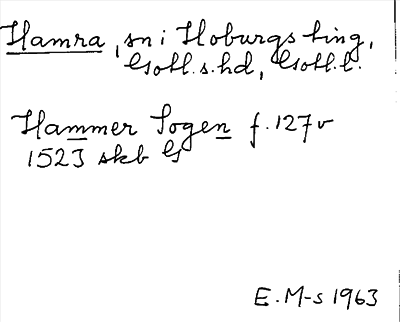 Hamra, sn i Hoburgs ting,
Gotl. s. hd, Gotl. l.
Hammer Sogen f. 127v
1523 skb G
E. M-s 1963